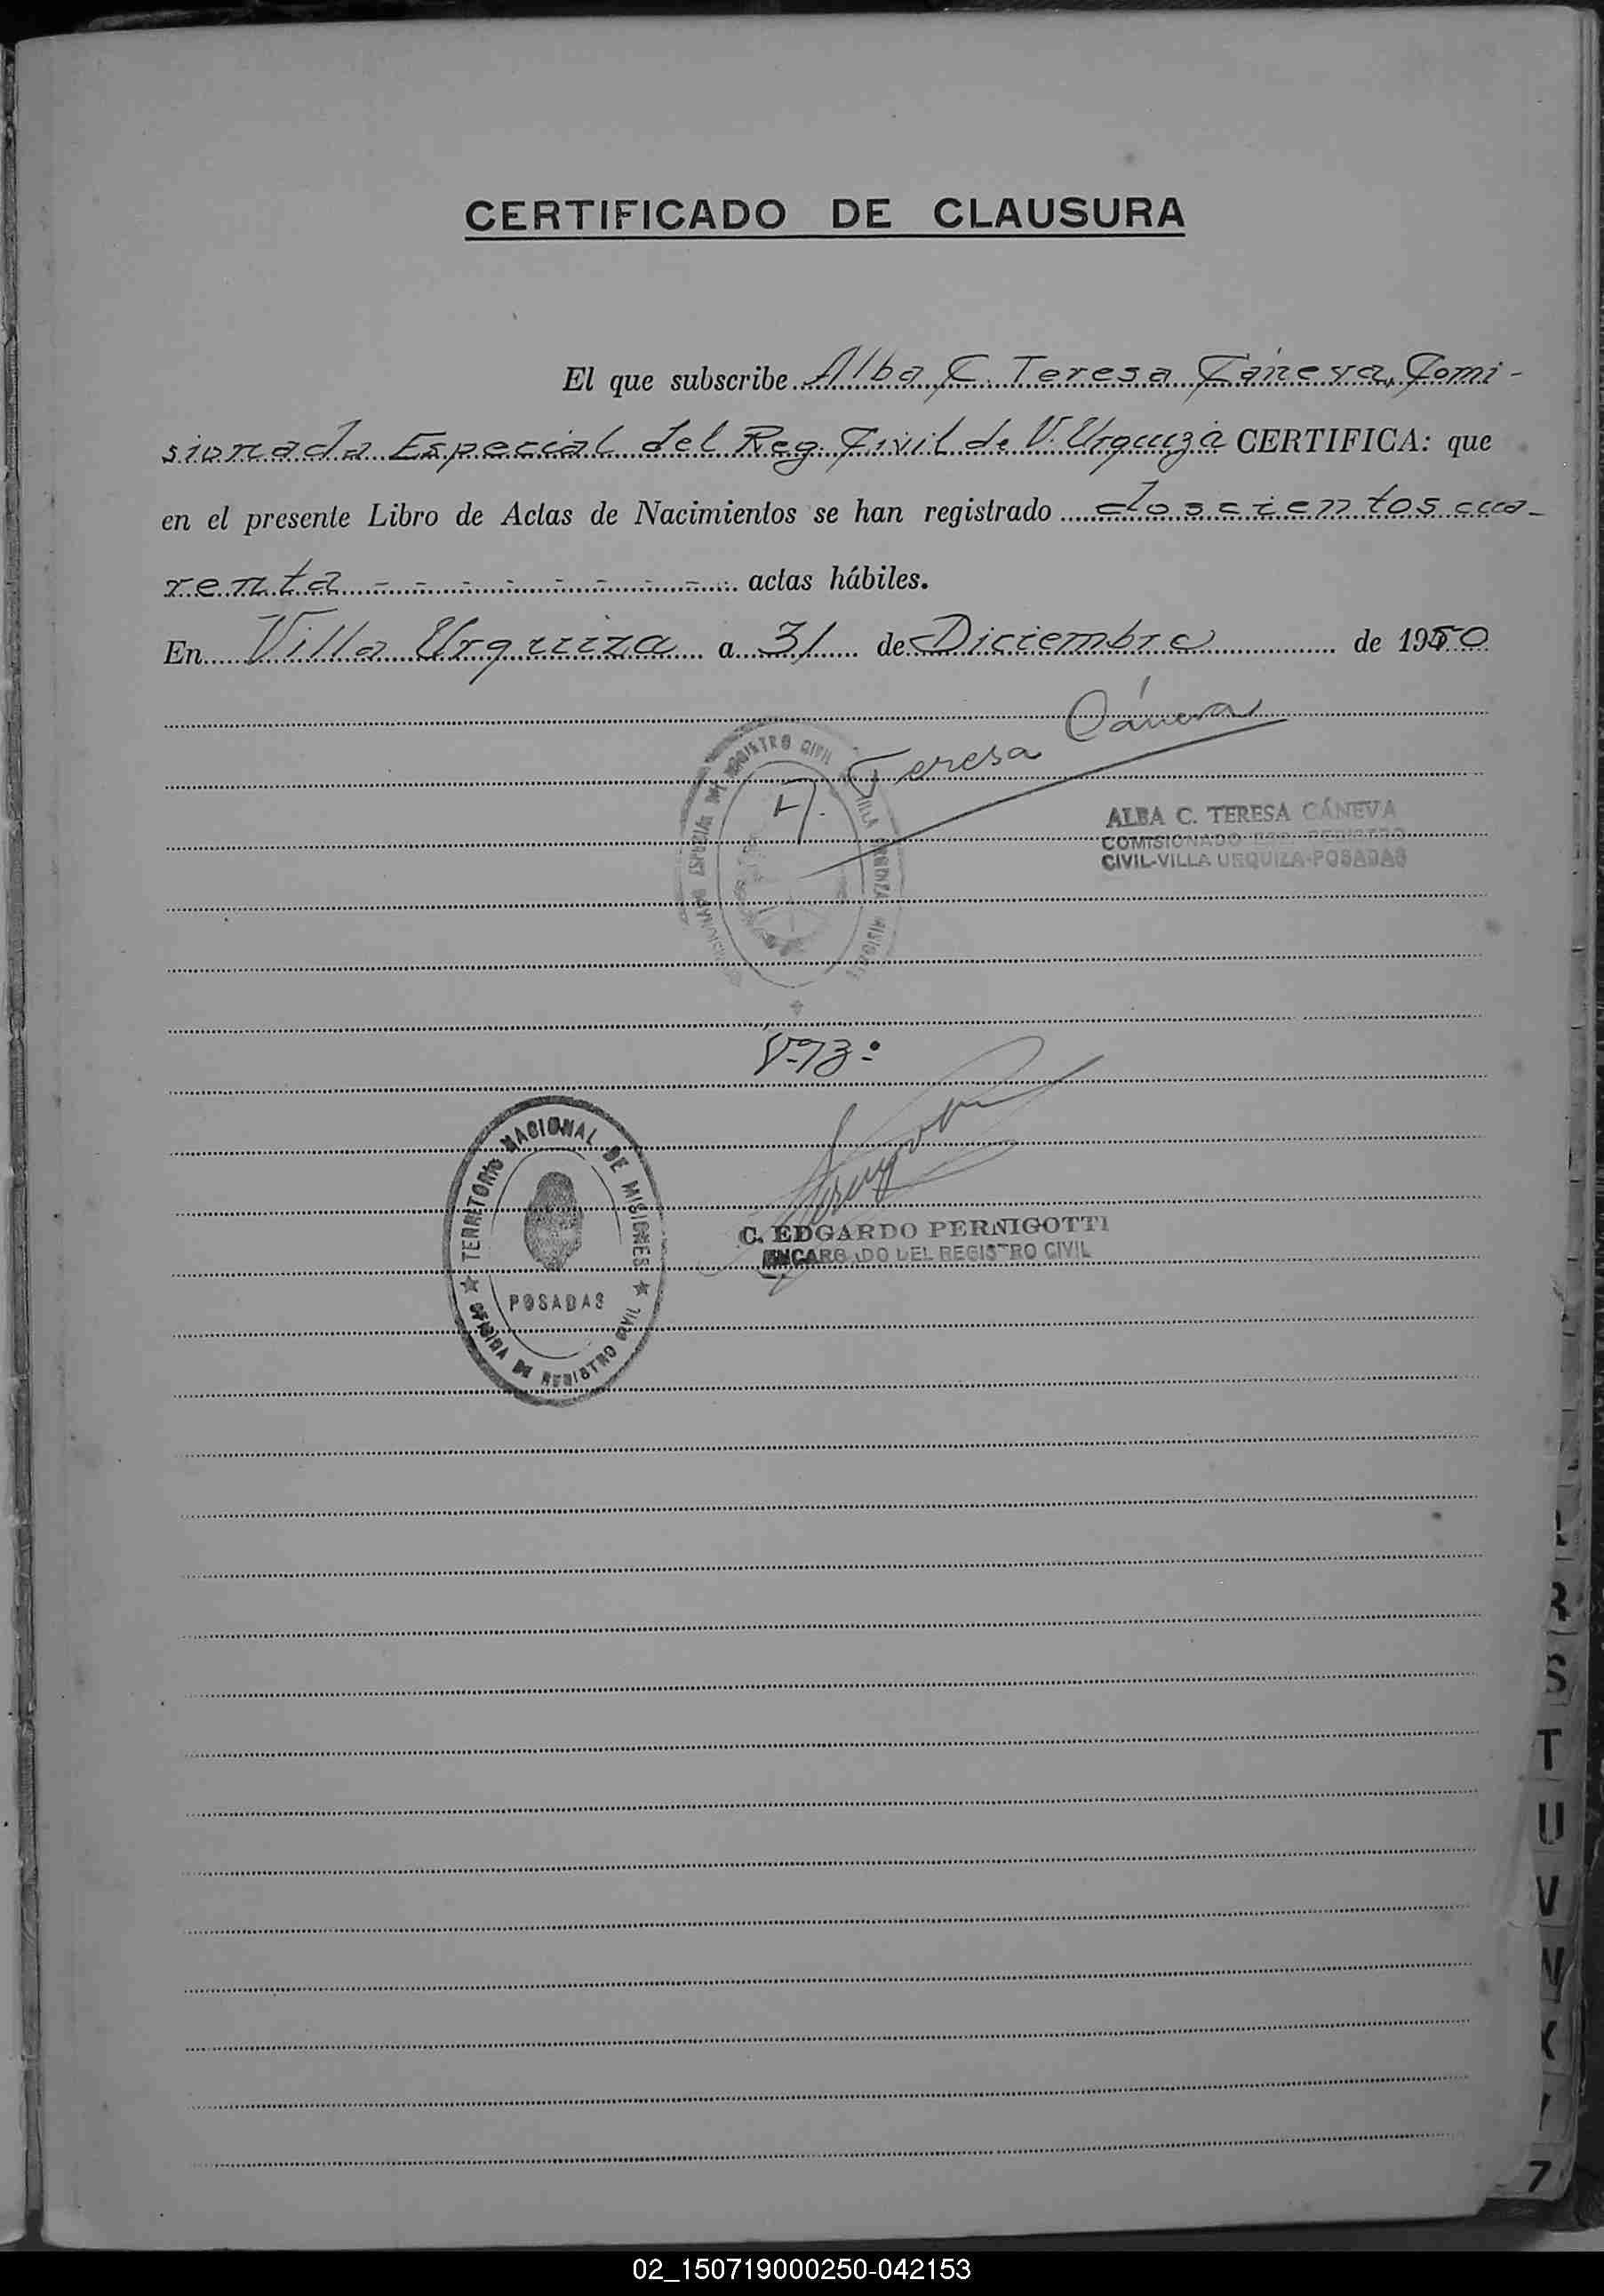 CERTIFICADO DE CLAUSURA
El que subscribe Alba C. Teresa Cáneva, Comi-
sionada Especial del Reg. Civil de V. Urquiza CERTIFICA: que
en el presente Libro de Actas de Nacimientos se han registrado doscientos cua-
renta actas hábiles.
En Villa Urquiza a 31 de Diciembre de 1950
A. Teresa Cáneva
REGISTRO CIVIL VILLA URQUIZA MISIONES
ALBA C. TERESA CÁNEVA
COMISIONADO ESP. REGISTRO
CIVIL-VILLA URQUIZA-POSADAS
VºBº
TERRITORIO NACIONAL DE MISIONES
POSADAS
OFICINA DE REGISTRO CIVIL
C. EDGARDO PERNIGOTTI
ENCARGADO DEL REGISTRO CIVIL
R
S
T
U
V
02_150719000250-042153